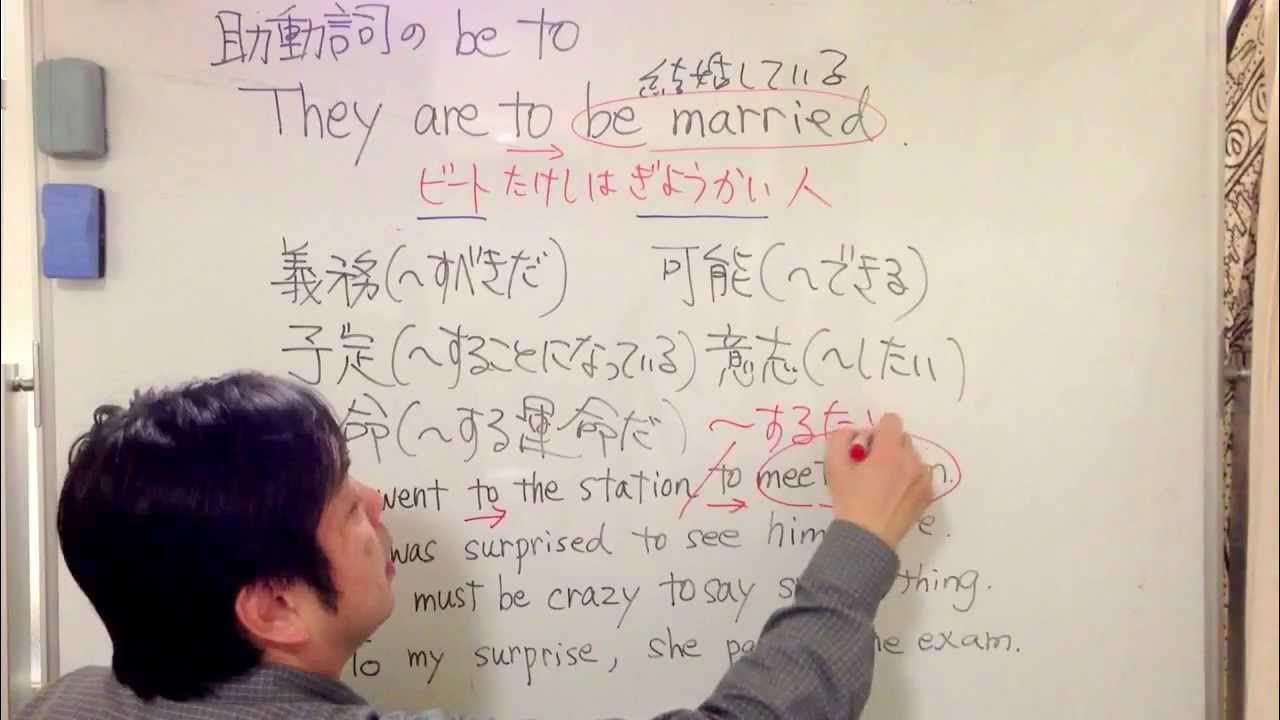 助動詞の be to
結婚している
They are to be married.
ビートたけしはぎょうかい人
義務(〜すべきだ) 可能(〜できる)
予定(〜することになっている) 意志(〜したい)
命(〜する運命だ) 〜するた
went to the station to meet
was surprised to see him
must be crazy to say thing.
To my surprise, she exam.